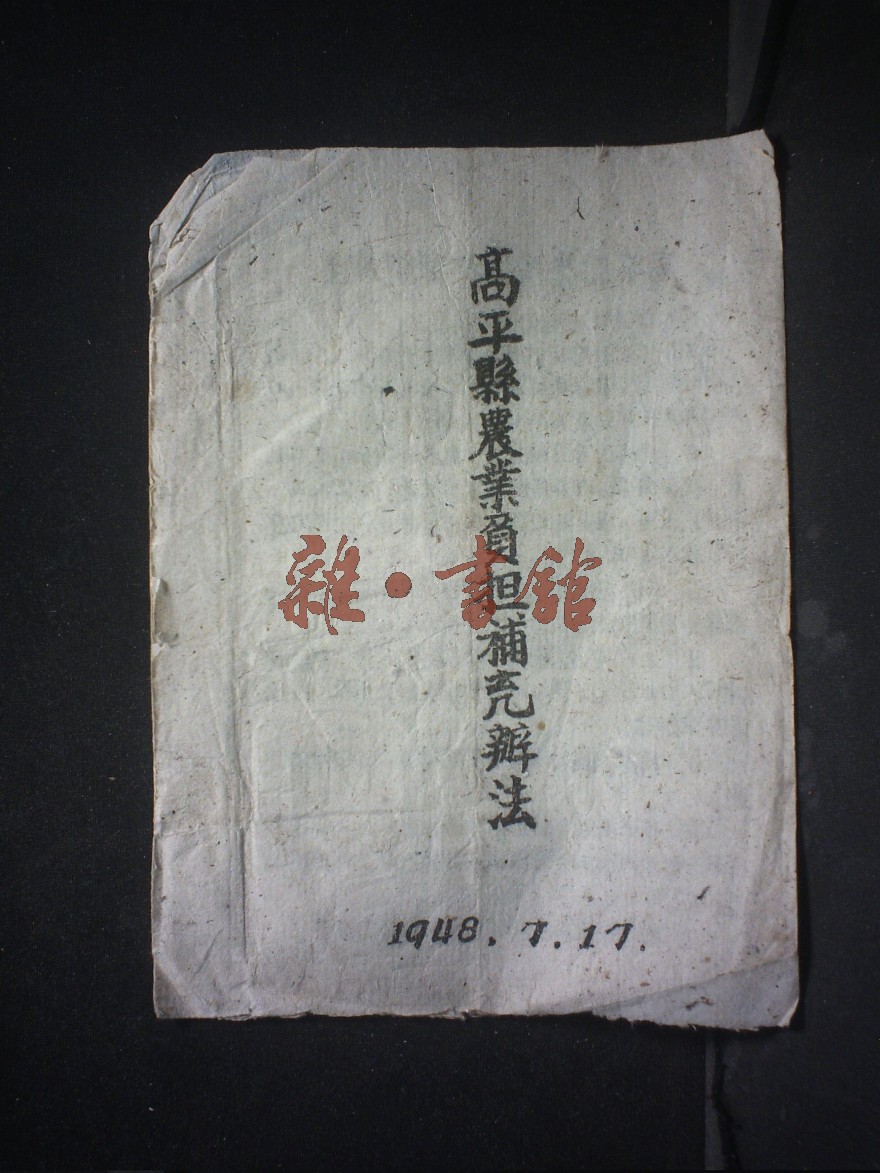 高平縣農業負担補充辦法
雜·書館
1948.7.17.